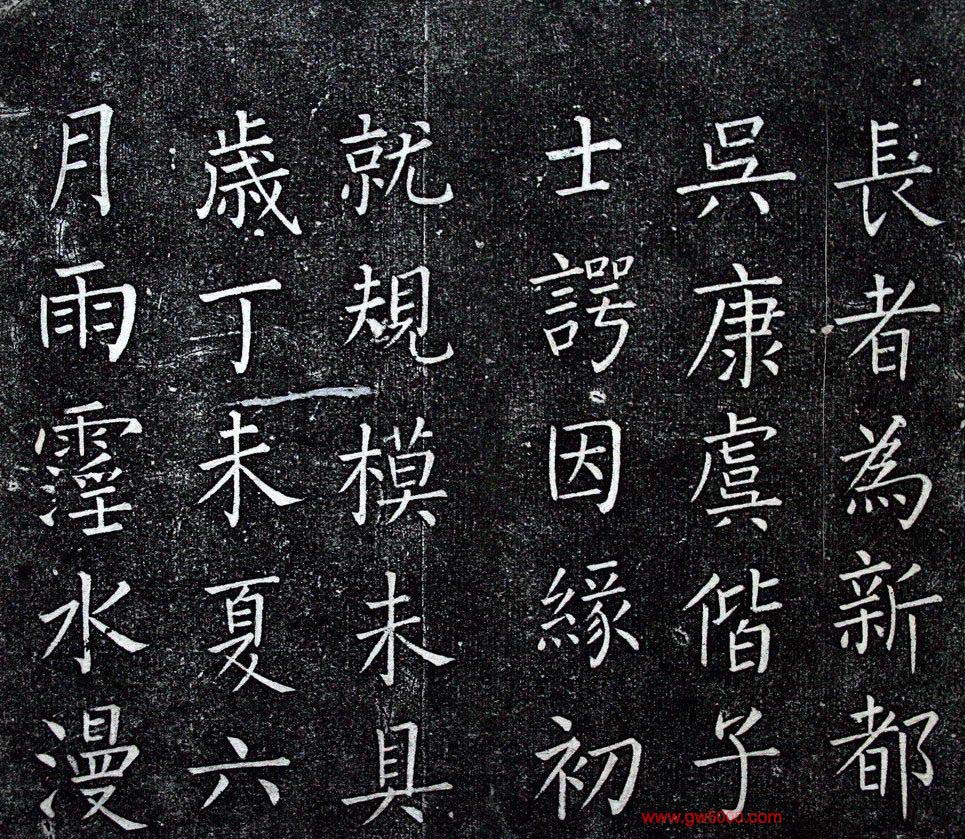 長者為新都
吳康虞偕子
士諤因緣初
就規模未具
歳丁未夏六
月雨霪水漫